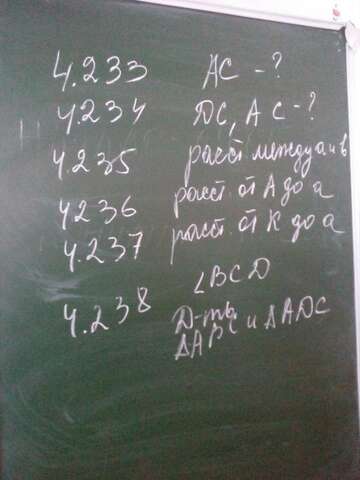 4.233 AC - ?
4.234 DC, AC - ?
4.235 расст. между a и в
4.236 расст. от A до a
4.237 расст. от K до a
∠BCD
4.238 Д-ть
ΔABC и ΔADC